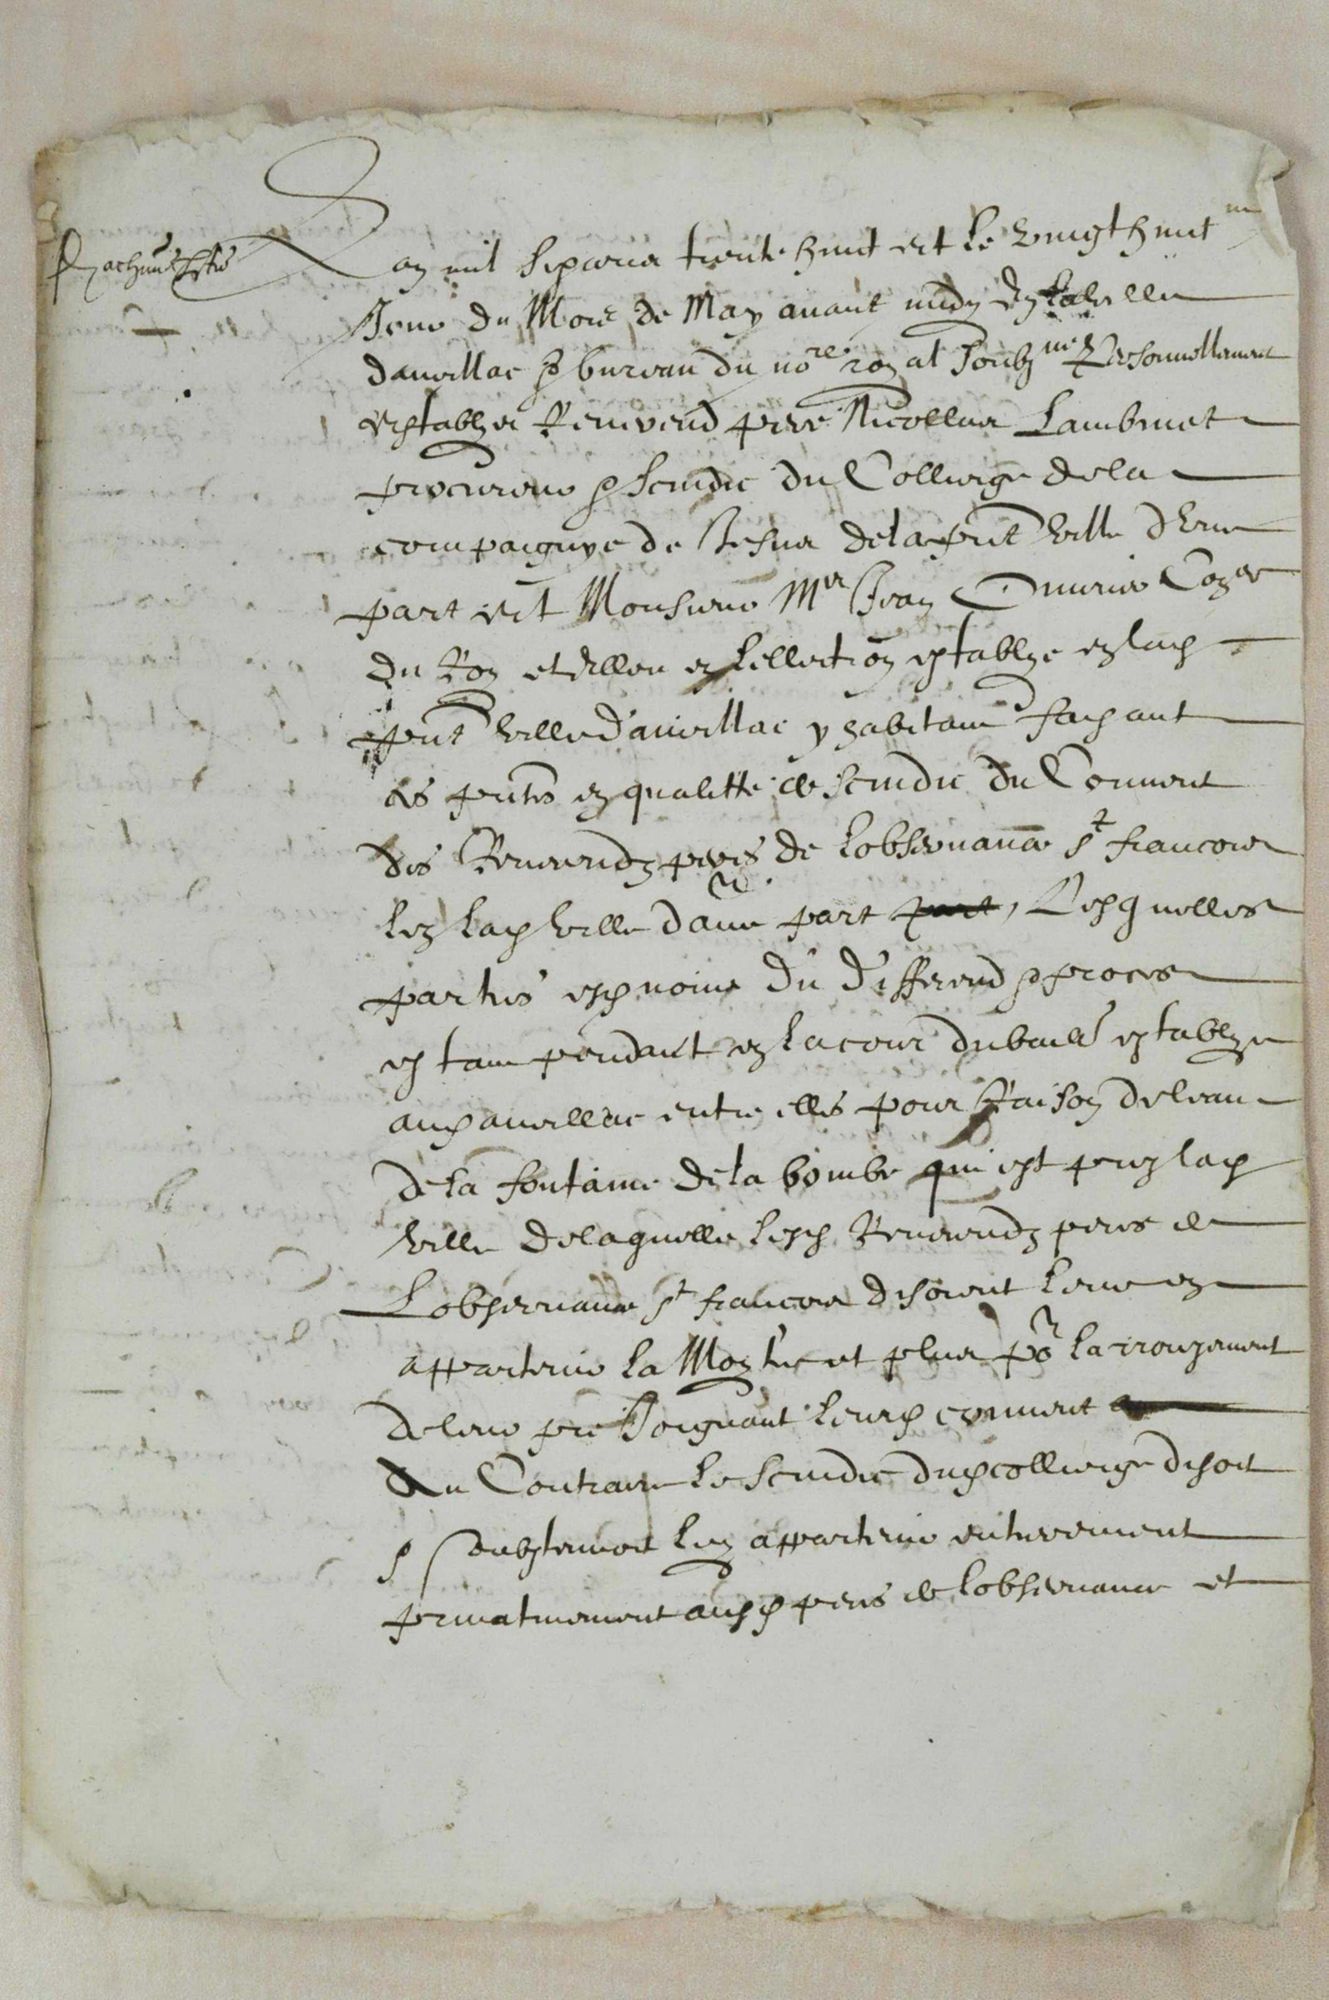 Lan mil six cens trente huict et le vingt huict
Jour du Mois de May avant midy en la ville
daurillac et bureau du nore royal soubzne Personnellement
establys Reverend pere Nicollas Lambinet
procureur et scindic du Colliege de la
compaignye de Jesus de la pnt ville dune
part et Monsieur Mer Jean Coner
du Roy et Esleu en lellection establye en lad
pnt ville d'aurillac y habitant faisant
es pntes en qualitte de scindic du Couvent
des Reverendz peres de lobservance St francois
lez lad ville dau part part, Lesquelles
parties esd noms du differend et proces
estant pendant en la cour du baille establye
aud aurillac entre elles pour Raison de leau
de la fontaine de la bombe qui est prez lad
ville de laquelle lesd Reverendz peres de
Lobservance St francois disoient leur en
appartenir la Moytie et plus pr larrouzement
de leur pre Joignant leurd couvent
Au Contraire le scindic dud colliege disoit
et soubztenoit luy appartenir entierement
privativement ausd peres de lobservance et